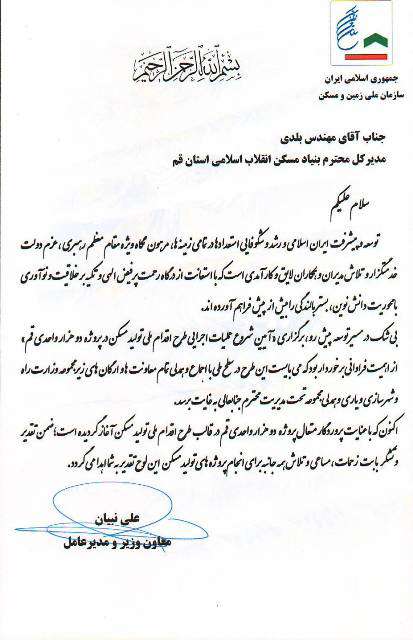 بسم الله الرحمن الرحیم
جمهوری اسلامی ایران
سازمان ملی زمین و مسکن
جناب آقای مهندس بلدی
مدیرکل محترم بنیاد مسکن انقلاب اسلامی استان قم
سلام علیکم
توسعه و پیشرفت ایران اسلامی و رشد و شکوفایی استعدادها در تمامی زمینه ها، مرهون نگاه ویژه مقام معظم رهبری، عزم دولت
خدمتگزار و تلاش مدیران و همکاران لایق و کارآمدی است که با استعانت از درگاه رحمت پر فیض الهی و تکیه بر خلاقیت و نوآوری
با محوریت دانش نوین، بستر بالندگی را بیش از پیش فراهم آورده اند.
بی شک در مسیر توسعه پیش رو، برگزاری «آیین شروع عملیات اجرایی طرح اقدام ملی تولید مسکن در پروژه دو هزار واحدی قم»
از اهمیت فراوانی برخوردار بود که می بایست این طرح در سطح ملی با اجماع و همدلی تمام معاونت ها و ارگان های زیرمجموعه وزارت راه
و شهرسازی و یاری و همدلی مجموعه تحت مدیریت محترم جنابعالی به غایت برسد.
اکنون که با عنایت پروردگار متعال پروژه دو هزار واحدی قم در قالب طرح اقدام ملی تولید مسکن آغاز گردیده است؛ ضمن تقدیر
و تشکر بابت زحمات، مساعی و تلاش همه جانبه برای انجام پروژه های تولید مسکن این لوح تقدیر به شما اهدا می گردد.
علی نبیان
معاون وزیر و مدیرعامل